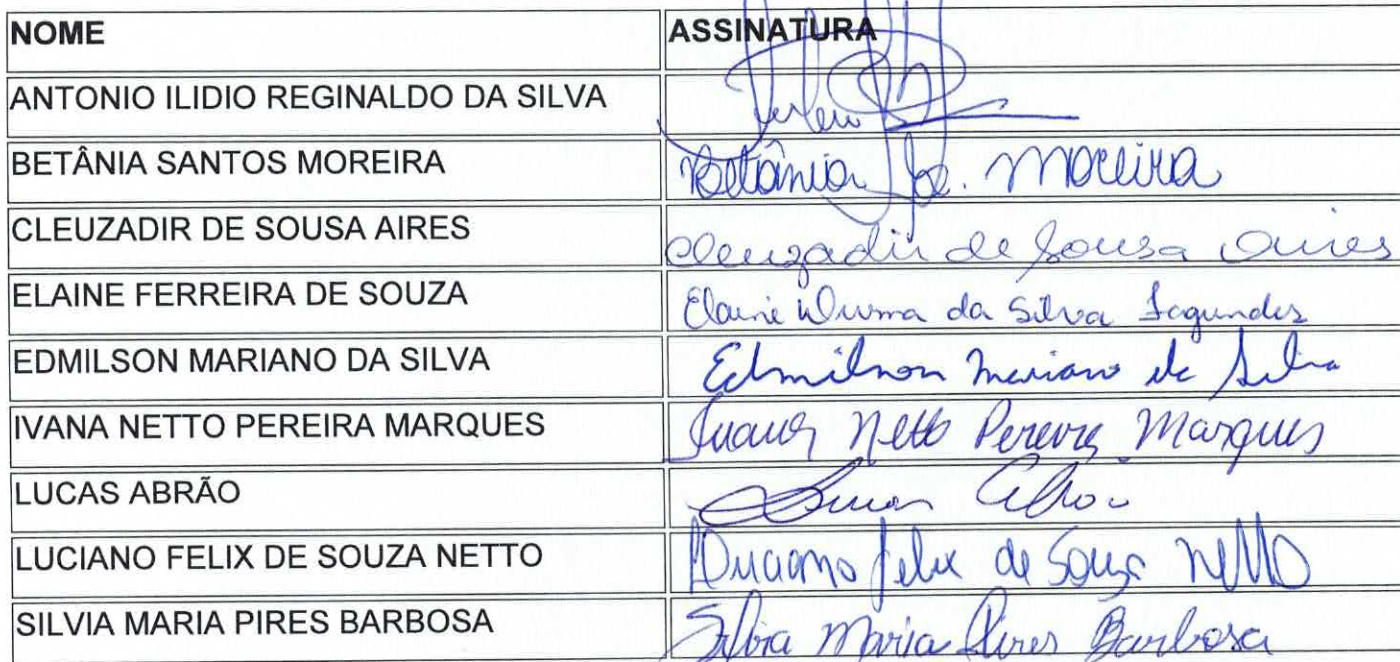 NOME ASSINATURA
ANTONIO ILIDIO REGINALDO DA SILVA
BETÂNIA SANTOS MOREIRA Betânia Moreira
CLEUZADIR DE SOUSA AIRES Cleuzadir de Sousa Aires
ELAINE FERREIRA DE SOUZA Elaine da Silva Fagundes
EDMILSON MARIANO DA SILVA Edmilson Mariano da Silva
IVANA NETTO PEREIRA MARQUES Ivana Netto Pereira Marques
LUCAS ABRÃO Lucas
LUCIANO FELIX DE SOUZA NETTO Luciano Felix de Souza Netto
SILVIA MARIA PIRES BARBOSA Silvia Maria Pires Barbosa